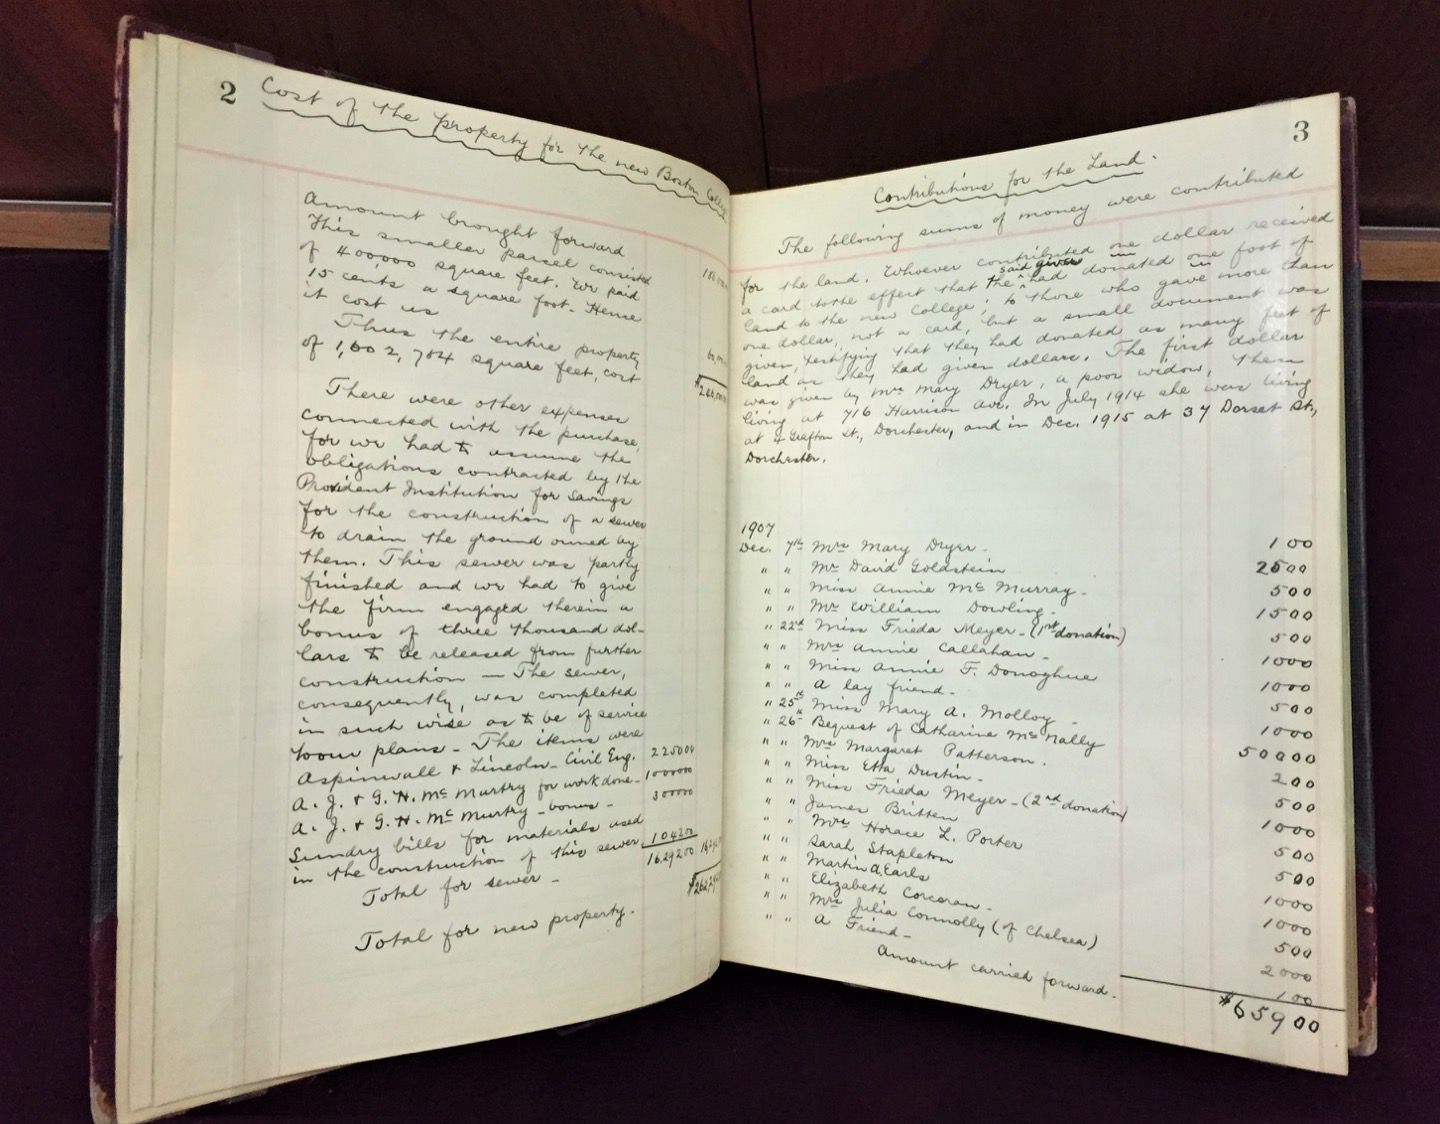 2
Cost of the property for the new Boston College
Amount brought forward
This smaller parcel consisted
of 400000 square feet. We paid
15 cents a square foot. Hence
it cost us
Thus the entire property
of 1,602,704 square feet, cost
There were other expenses
connected with the purchase,
for we had to assume the
obligations contracted by the
Provident Institution for Savings
for the construction of a sewer
to drain the ground owned by
them. This sewer was partly
finished and we had to give
the firm engaged therein a
bonus of three thousand dol-
lars to be released from further
construction — The sewer,
consequently, was completed
in such wise as to be of service
to our plans — The items were
Aspinwall & Lincoln - Civil Eng. 225000
A. J. & G. H. McMurtry for work done - 1000000
A. J. & G. H. McMurtry - bonus - 300000
Sundry bills for materials used
in the construction of this sewer 104200
Total for sewer - 1629200
Total for new property -
3
Contributions for the Land.
The following sums of money were contributed
for the land. Whoever contributed one dollar received
a card to the effect that the said giver had donated one foot of
land to the new College; to those who gave more than
one dollar, not a card, but a small document was
given, testifying that they had donated as many feet of
land as they had given dollars. The first dollar
was given by Mrs Mary Dryer, a poor widow, then
living at 716 Harrison Ave. In July 1914 she was living
at 4 Grafton St., Dorchester, and in Dec. 1915 at 37 Dorset St.,
Dorchester.
1907
Dec. 7th Mrs Mary Dryer - 100
" " Mr David Goldstein 2500
" " Miss Annie McMurray - 500
" " Mr William Dowling - 1500
" 22d Miss Frieda Meyer - (1st donation) 500
" " Mrs Annie Callahan - 1000
" " Miss Annie F. Donoghue 1000
" " A lay friend - 500
" 25th Miss Mary A. Molloy - 1000
" 26th Bequest of Catharine McNally 50000
" " Mrs Margaret Patterson. 200
" " Miss Etta Dustin - 500
" " Miss Frieda Meyer - (2nd donation) 1000
" " James Britten 500
" " Mrs Horace L. Porter 500
" " Sarah Stapleton 1000
" " Martin A. Earls 1000
" " Elizabeth Corcoran - 500
" " Mrs Julia Connolly (of Chelsea) 2000
" " A Friend - 100
Amount carried forward. $65900